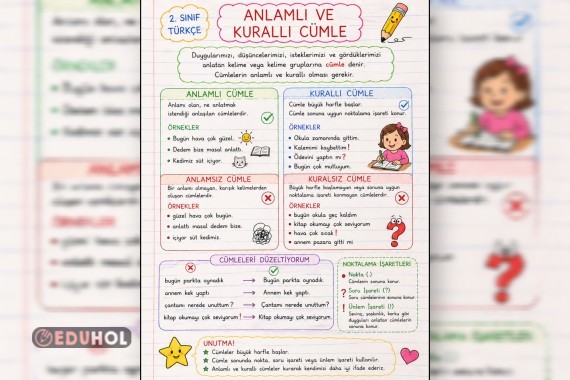 2. SINIF
TÜRKÇE
ANLAMLI VE
KURALLI CÜMLE
Duygularımızı, düşüncelerimizi, isteklerimizi ve gördüklerimizi
anlatan kelime veya kelime gruplarına cümle denir.
Cümlelerin anlamlı ve kurallı olması gerekir.
ANLAMLI CÜMLE
Anlamı olan, ne anlatmak
istendiği anlaşılan cümlelerdir.
ÖRNEKLER
• Bugün hava çok güzel.
• Dedem bize masal anlattı.
• Kedimiz süt içiyor.
KURALLI CÜMLE
Cümle büyük harfle başlar.
Cümle sonuna uygun noktalama işareti konur.
ÖRNEKLER
• Okula zamanında gittim.
• Kalemimi kaybettim!
• Ödevini yaptın mı?
• Bugün çok mutluyum.
ANLAMSIZ CÜMLE
Bir anlamı olmayan, karışık kelimelerden
oluşan cümlelerdir.
ÖRNEKLER
• güzel hava çok bugün.
• anlattı masal dedem bize.
• içiyor süt kedimiz.
KURALSIZ CÜMLE
Büyük harfle başlamayan veya sonuna uygun
noktalama işareti konmayan cümlelerdir.
ÖRNEKLER
• bugün okula geç kaldım
• kitap okumayı çok seviyorum
• hava çok sıcak!
• annem pazara gitti mi
CÜMLELERİ DÜZELTİYORUM
bugün parkta oynadık → Bugün parkta oynadık.
annem kek yaptı → Annem kek yaptı.
çantamı nerede unuttum? → Çantamı nerede unuttum?
kitap okumayı çok seviyorum! → Kitap okumayı çok seviyorum.
NOKTALAMA İŞARETLERİ
• Nokta (.)
Cümlenin sonuna konur.
? Soru İşareti (?)
Soru cümlelerinin sonuna konur.
! Ünlem İşareti (!)
Sevinç, şaşkınlık, korku gibi
duyguları anlatan cümlelerin
sonuna konur.
UNUTMA!
★ Cümleler büyük harfle başlar.
★ Cümle sonunda nokta, soru işareti veya ünlem işareti kullanılır.
★ Anlamlı ve kurallı cümleler kurarak kendimizi daha iyi ifade ederiz.
EDUHOL